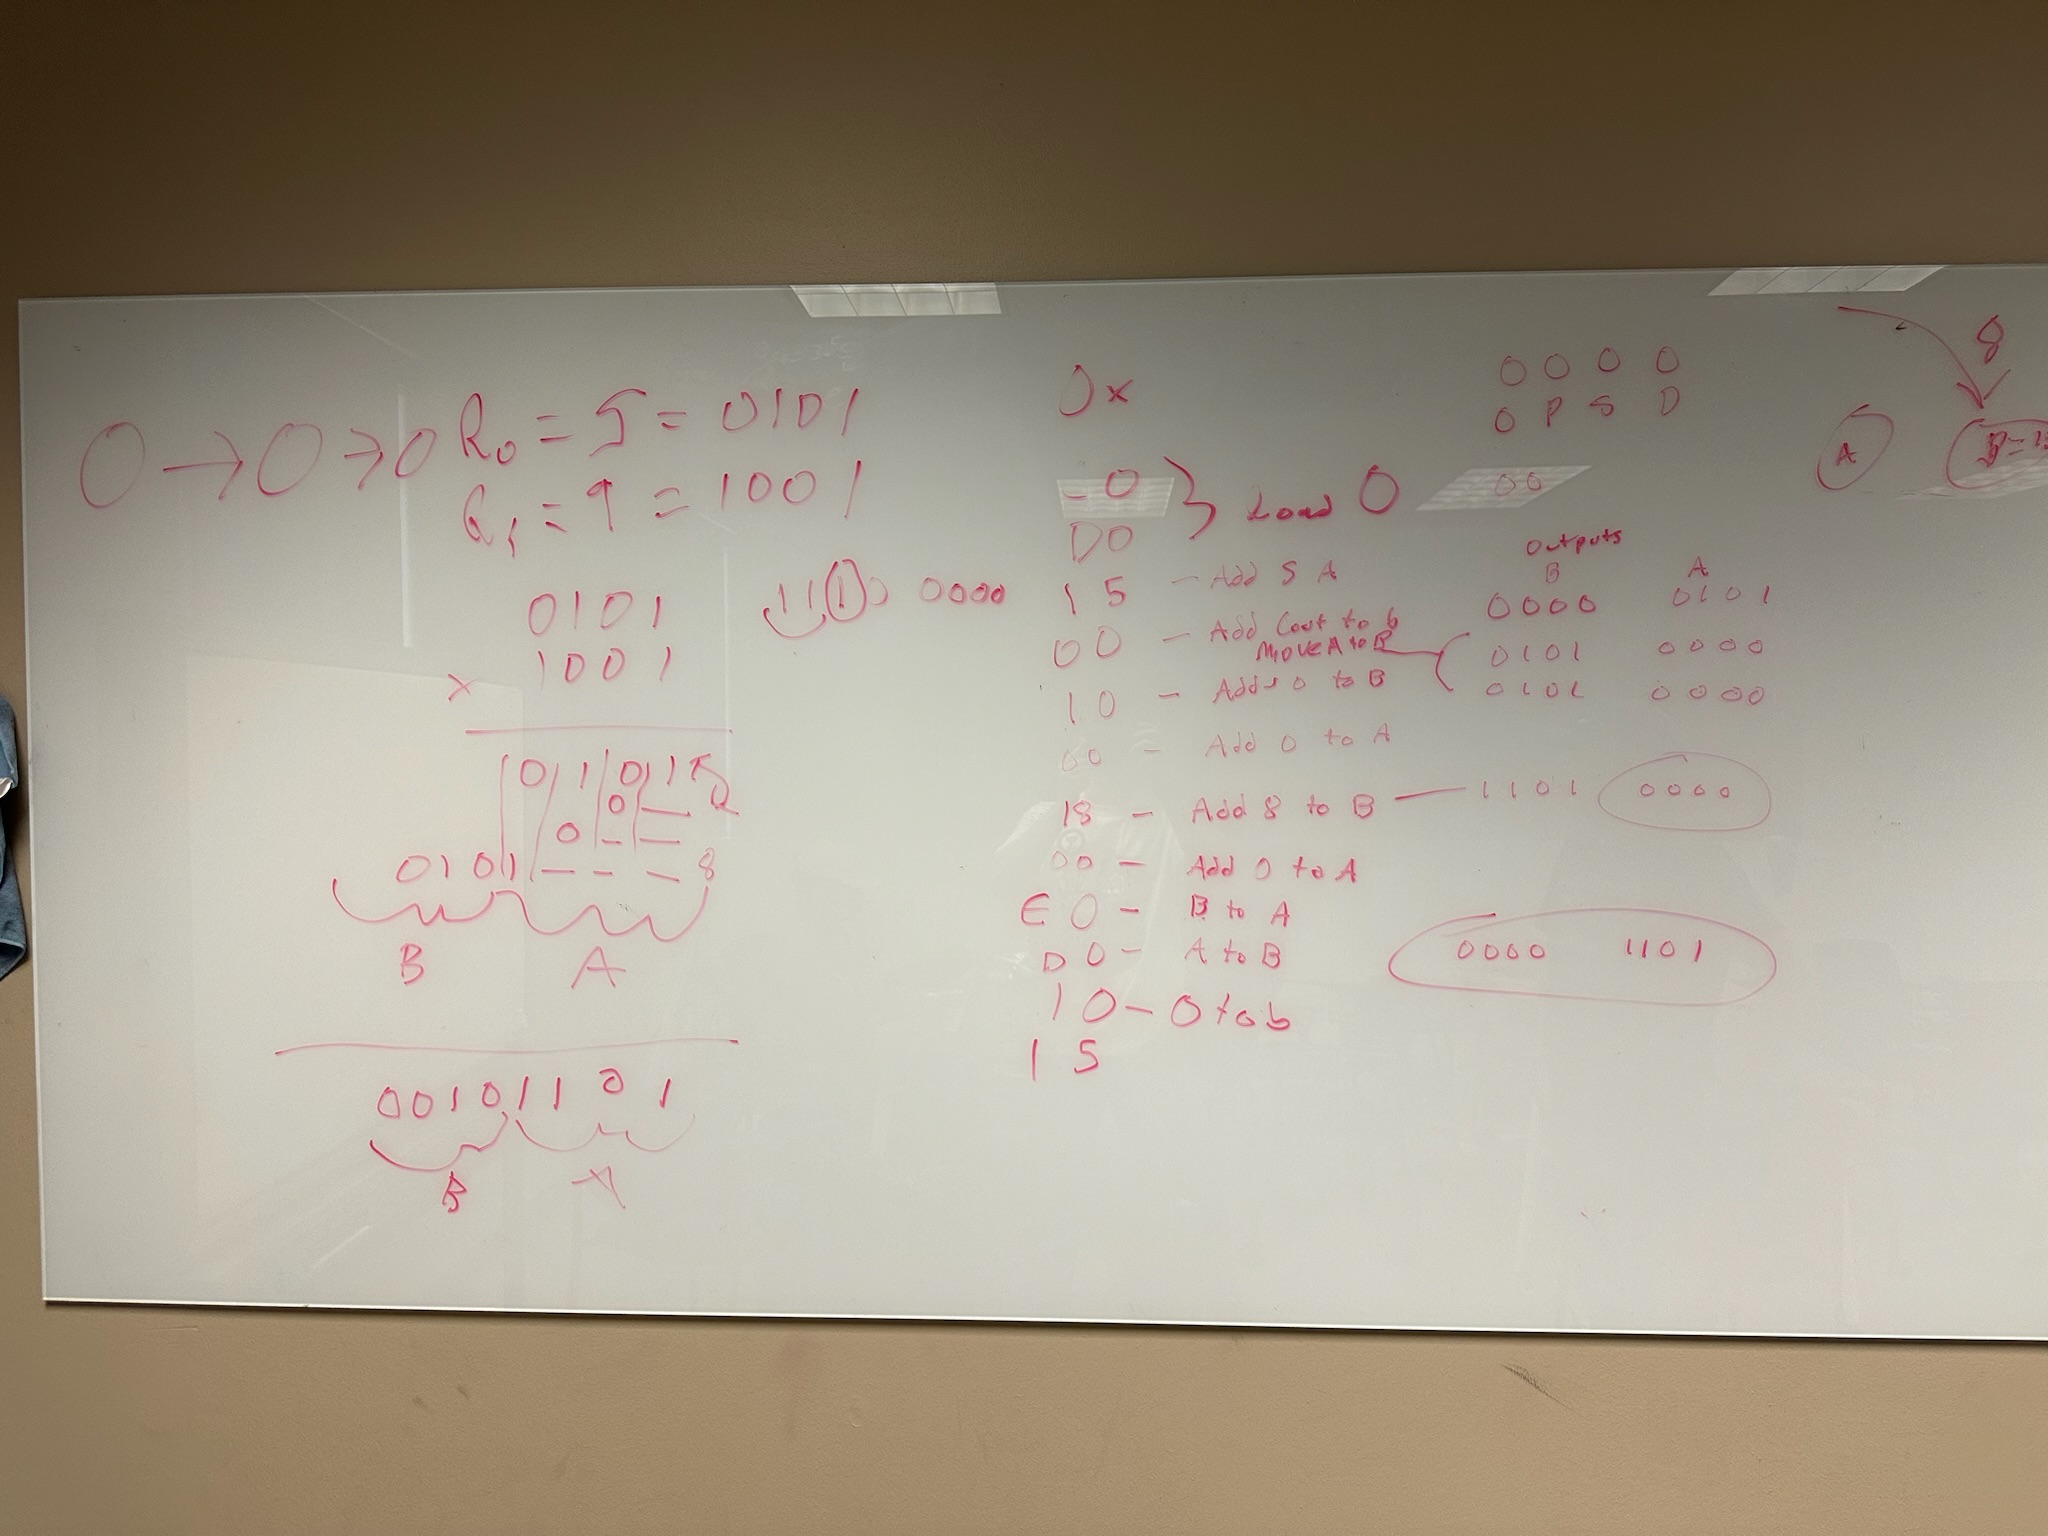 0 → 0 → 0 R0 = 5 = 0101
R1 = 9 = 1001
0101
x 1001
0 1 0 1
0 — 
0 — —
0101 — — — 8
B A
00101101
B A
1110 0000
0x
-0 } Load 0
D0
15 — Add 5 A
00 — Add Cout to b
Move A to B
10 — Add 0 to B
00 — Add 0 to A
18 — Add 8 to B — 1101 0000
00 — Add 0 to A
E0 — B to A
D0 — A to B
10 — 0 to b
15
0 0 0 0
O P S D
00
Outputs
B A
0000 0101
0101 0000
0101 0000
0000 1101
8
A